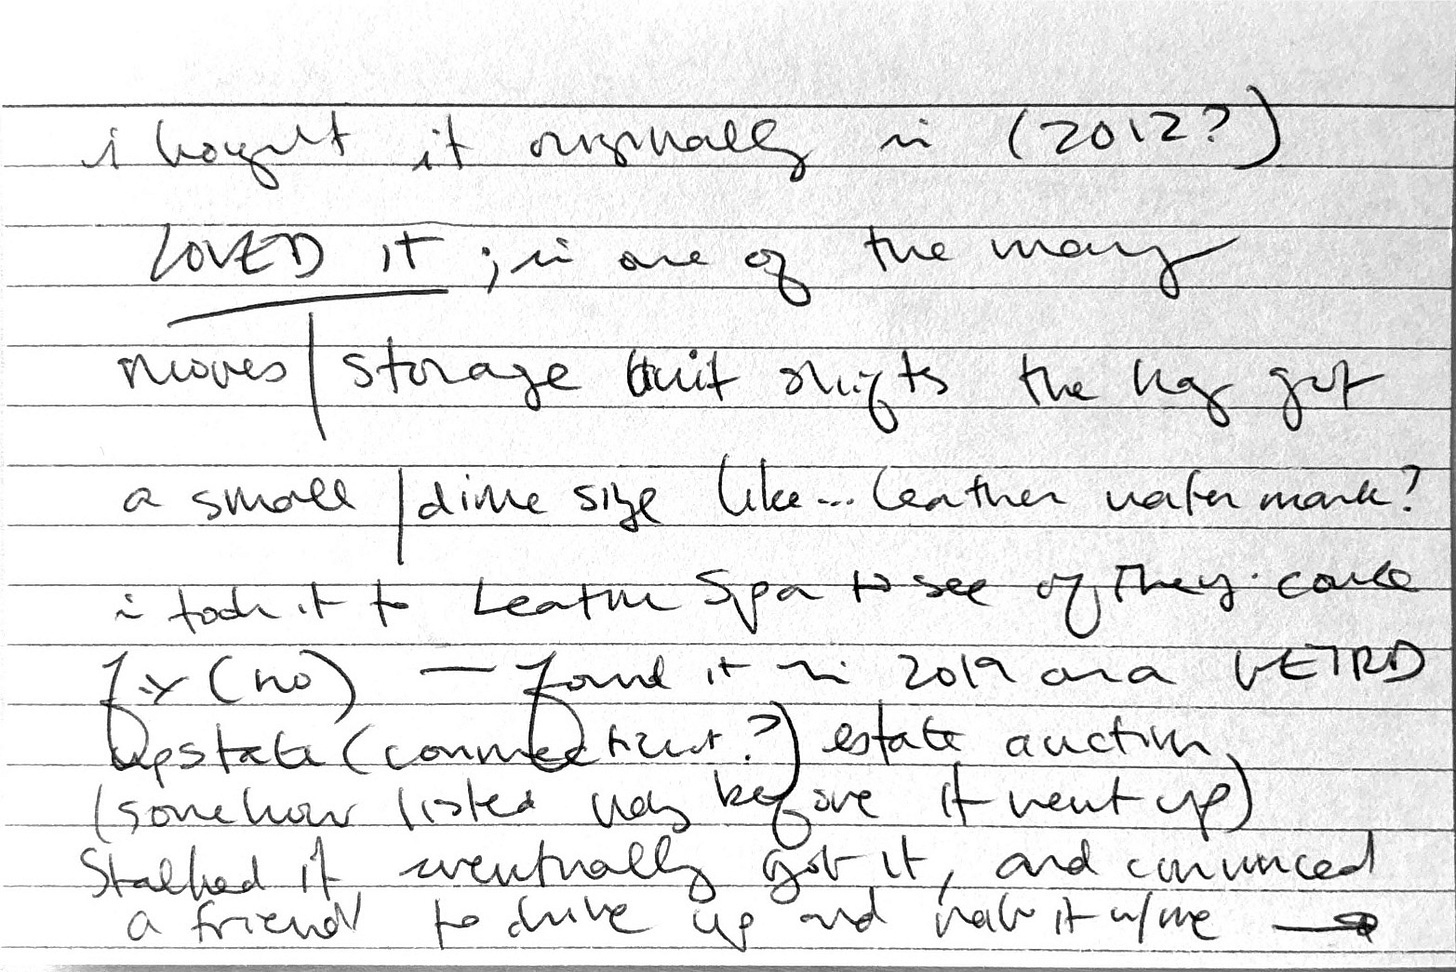 i bought it originally in (2012?)
LOVED it ; in one of the many
moves / storage unit shifts the bag got
a small / dime size like... leather water mark?
i took it to Leather Spa to see if they could
fix (no) — found it in 2019 on a WEIRD
upstate (connecticut?) estate auction
(somehow listed way before it went up)
Stalked it, eventually got it, and convinced
a friend to drive up and nab it w/me →